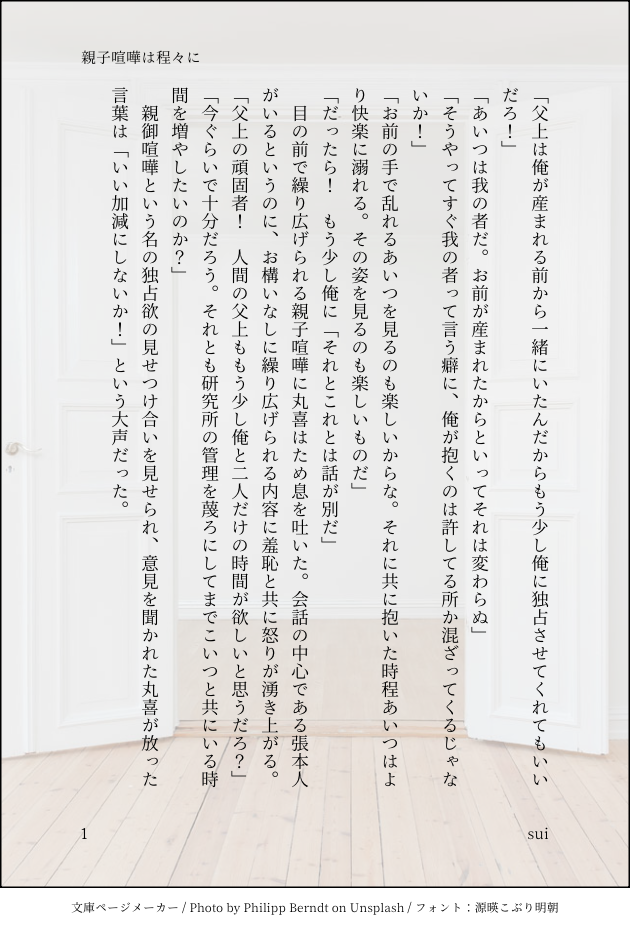 親子喧嘩は程々に
「父上は俺が産まれる前から一緒にいたんだからもう少し俺に独占させてくれてもいい
だろ！」
「あいつは我の者だ。お前が産まれたからといってそれは変わらぬ」
「そうやってすぐ我の者って言う癖に、俺が抱くのは許してる所か混ざってくるじゃな
いか！」
「お前の手で乱れるあいつを見るのも楽しいからな。それに共に抱いた時程あいつはよ
り快楽に溺れる。その姿を見るのも楽しいものだ」
「だったら！　もう少し俺に「それとこれとは話が別だ」
　目の前で繰り広げられる親子喧嘩に丸喜はため息を吐いた。会話の中心である張本人
がいるというのに、お構いなしに繰り広げられる内容に羞恥と共に怒りが湧き上がる。
「父上の頑固者！　人間の父上ももう少し俺と二人だけの時間が欲しいと思うだろ？」
「今ぐらいで十分だろう。それとも研究所の管理を蔑ろにしてまでこいつと共にいる時
間を増やしたいのか？」
　親御喧嘩という名の独占欲の見せつけ合いを見せられ、意見を聞かれた丸喜が放った
言葉は「いい加減にしないか！」という大声だった。
1
sui
文庫ページメーカー / Photo by Philipp Berndt on Unsplash / フォント：源暎こぶり明朝